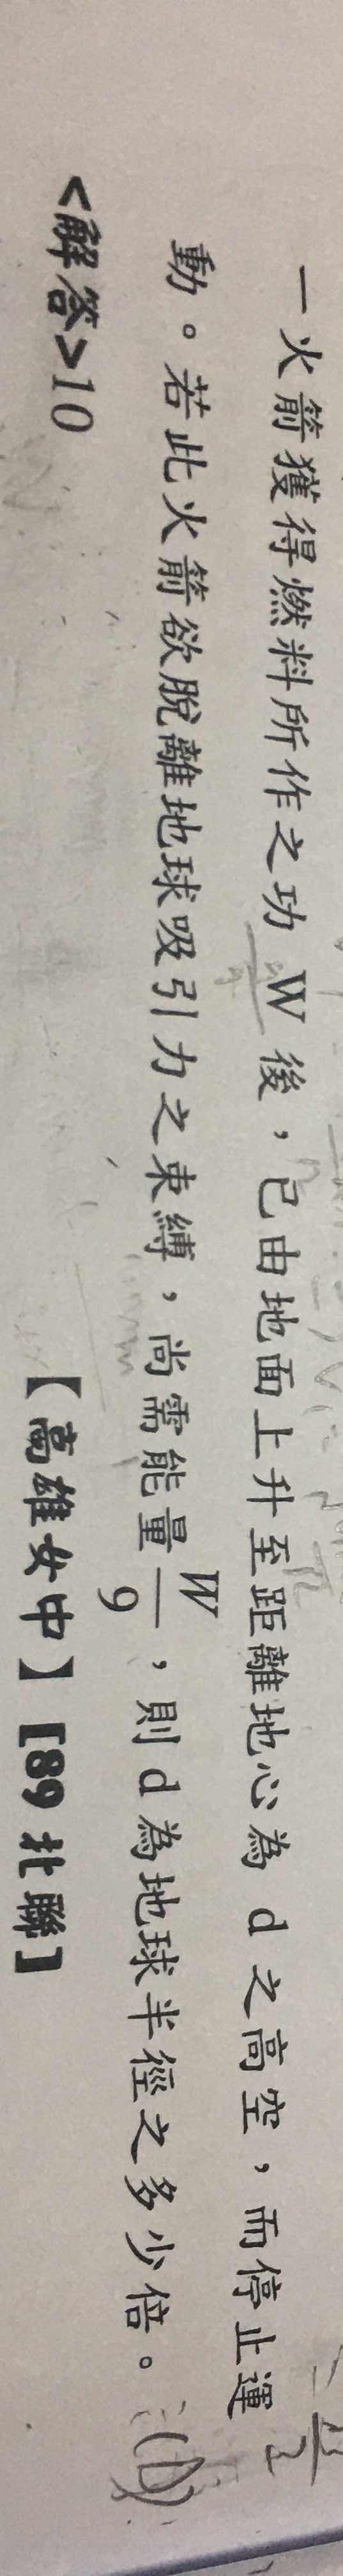 一火箭獲得燃料所作之功 W 後，已由地面上升至距離地心為 d 之高空，而停止運
動。若此火箭欲脫離地球吸引力之束縛，尚需能量 W/9，則 d 為地球半徑之多少倍。
<解答>10
【高雄女中】【89 北聯】